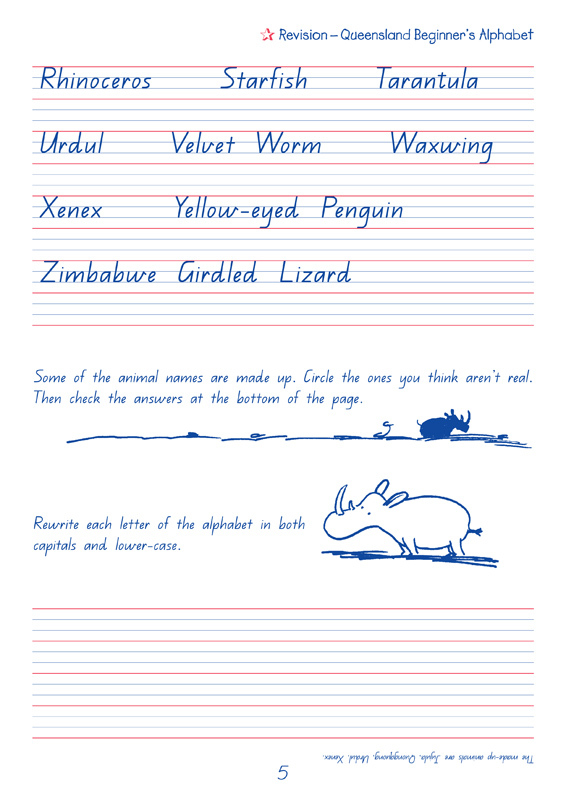 Revision – Queensland Beginner's Alphabet
Rhinoceros Starfish Tarantula
Urdul Velvet Worm Waxwing
Xenex Yellow-eyed Penguin
Zimbabwe Girdled Lizard
Some of the animal names are made up. Circle the ones you think aren't real.
Then check the answers at the bottom of the page.
Rewrite each letter of the alphabet in both
capitals and lower-case.
The made-up animals are Urdul, Xenex.
5